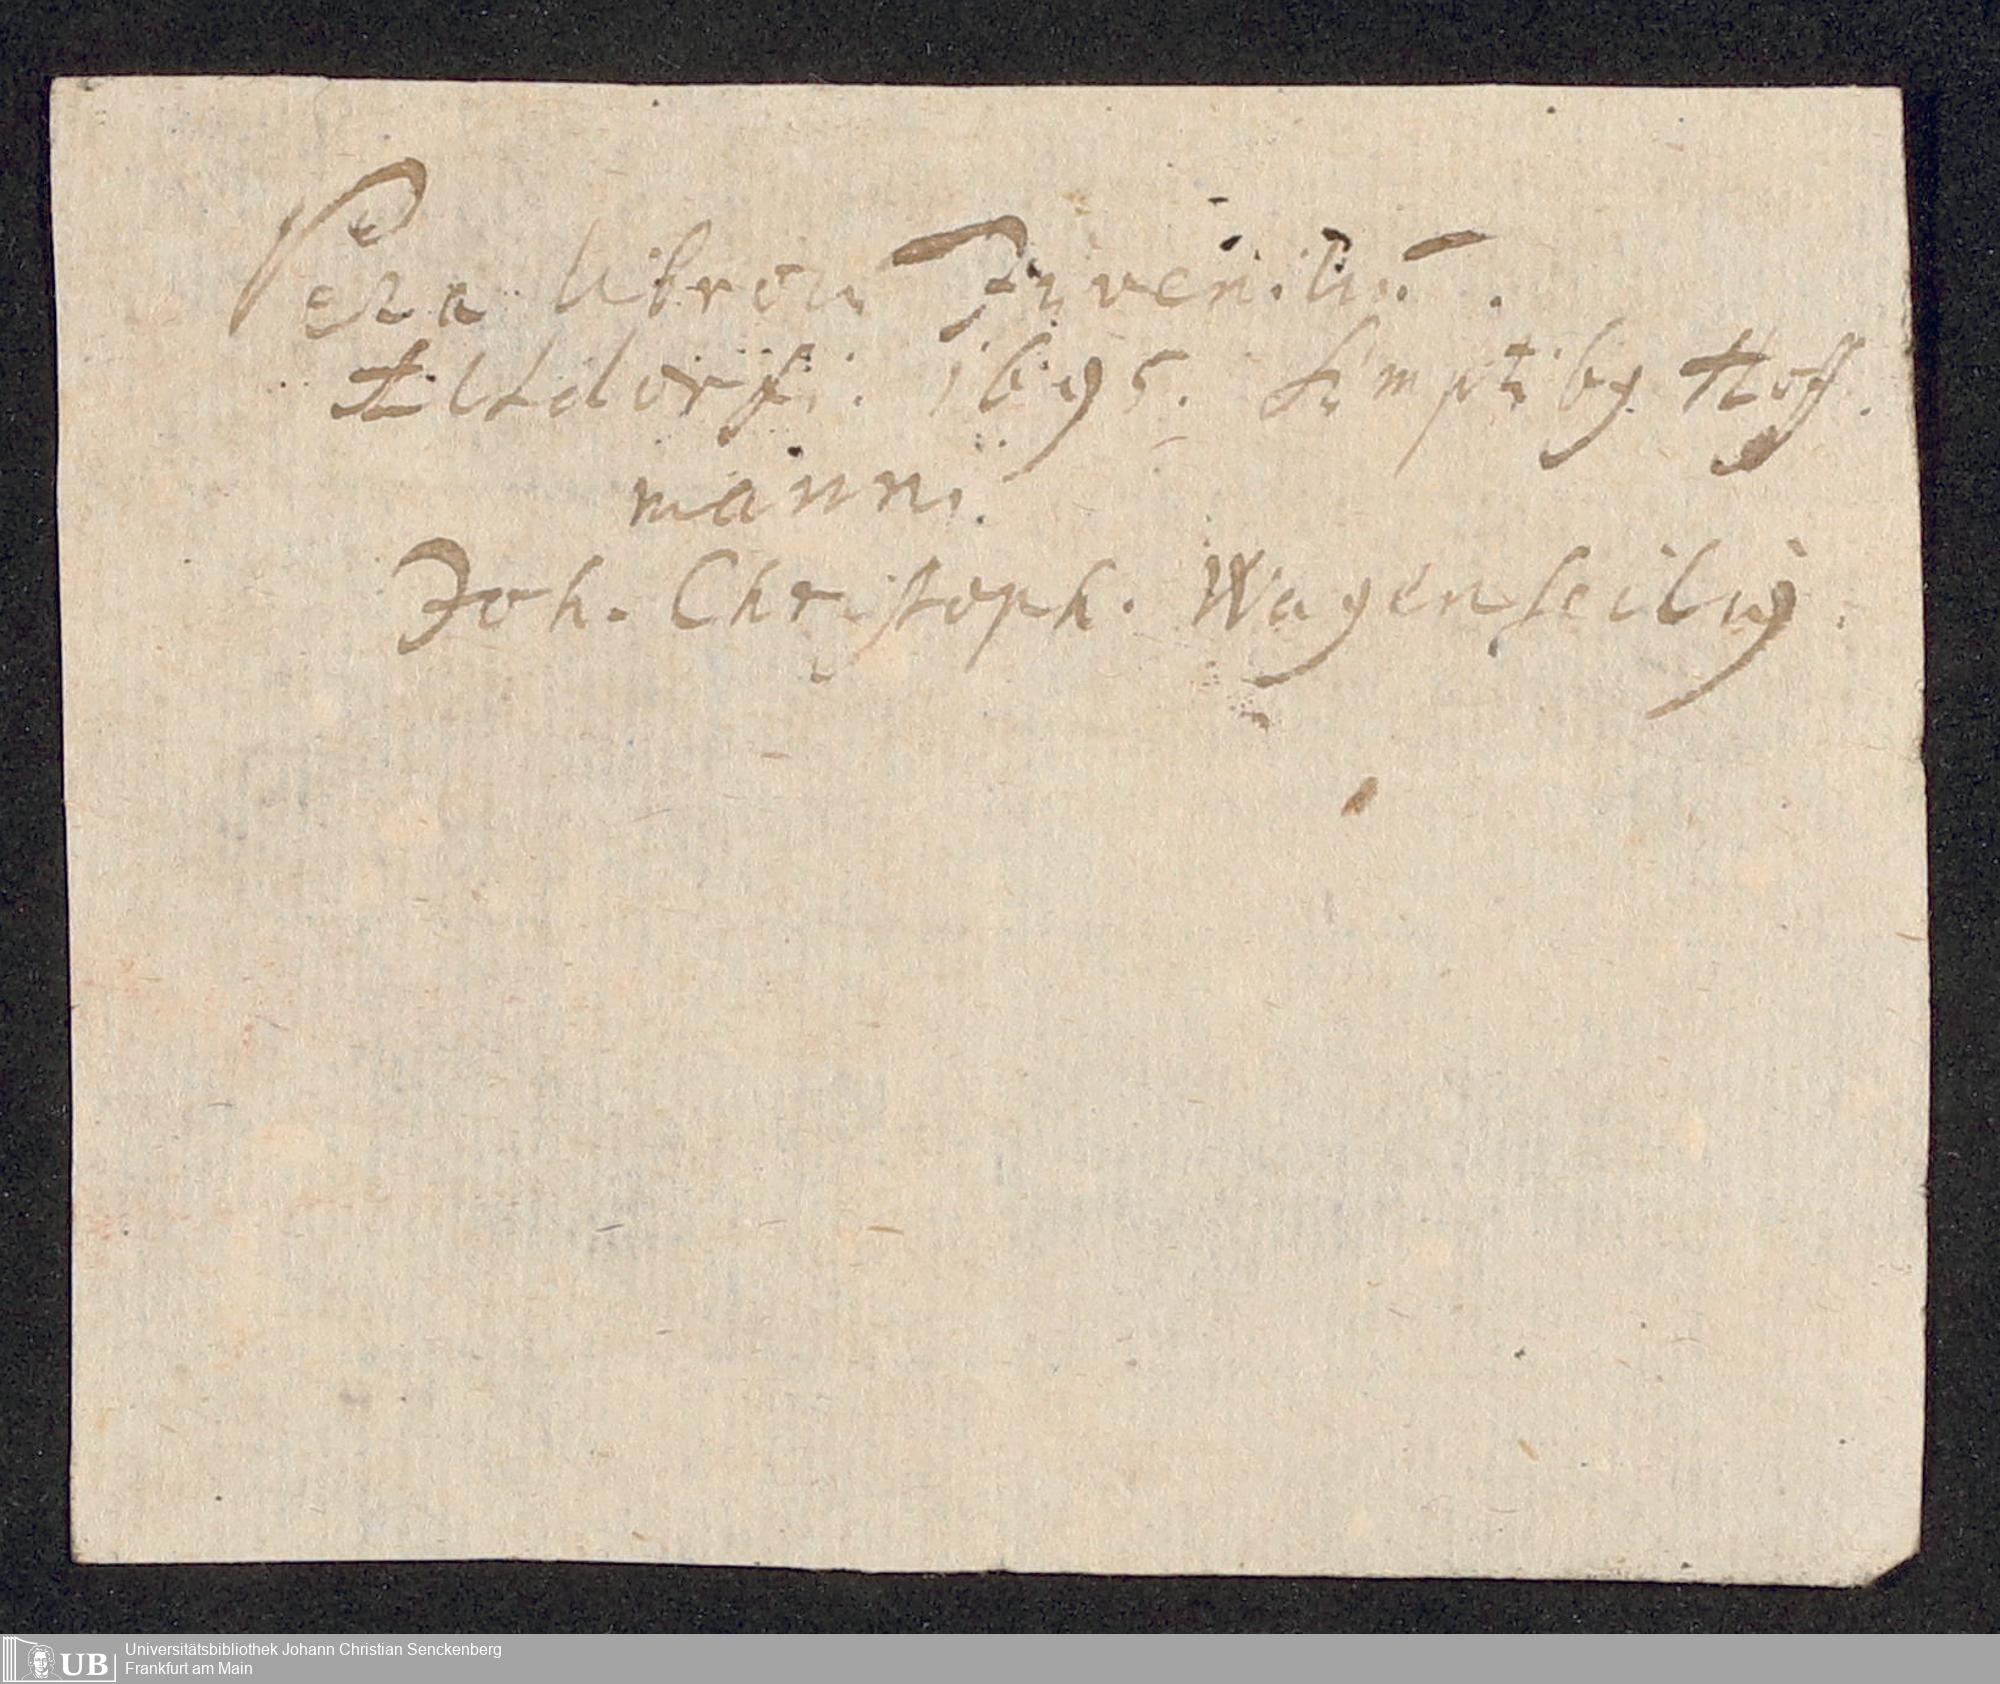 Pera librorũ Juveniliũ.
Altdorfi. 1695. Sumptibg Hoff.
manni.
Joh. Christoph. Wagenseilij.
UB
Universitätsbibliothek Johann Christian Senckenberg
Frankfurt am Main